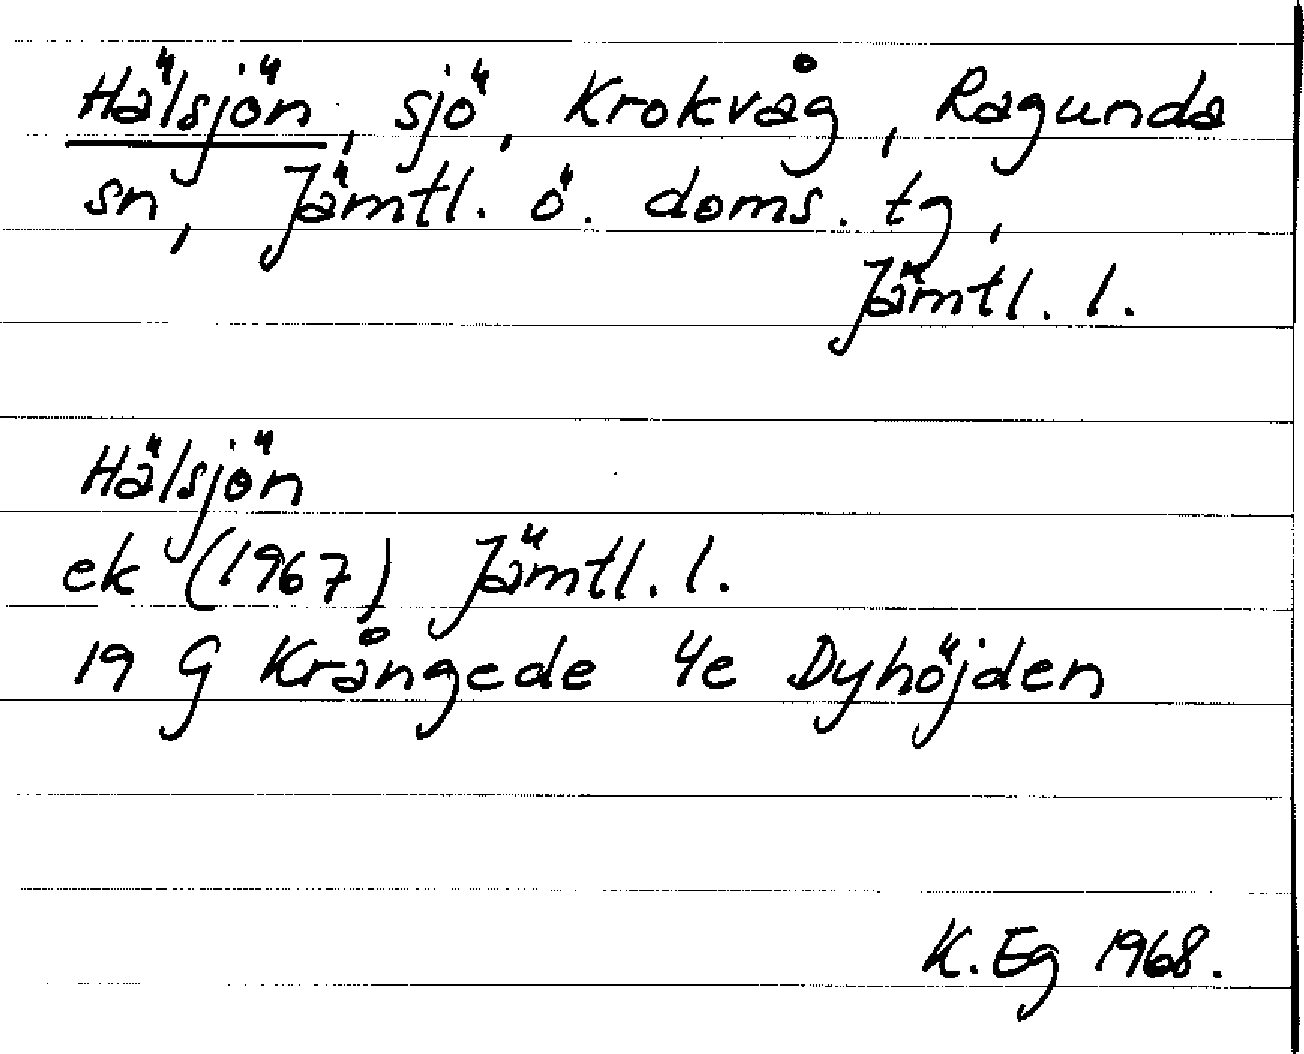 Hälsjön, sjö, Krokvåg, Ragunda
sn, Jämtl. ö. doms. tg,
Jämtl. l.
Hälsjön
ek (1967) Jämtl. l.
19 G Krångede 4e Dyhöjden
K. Eg 1968.